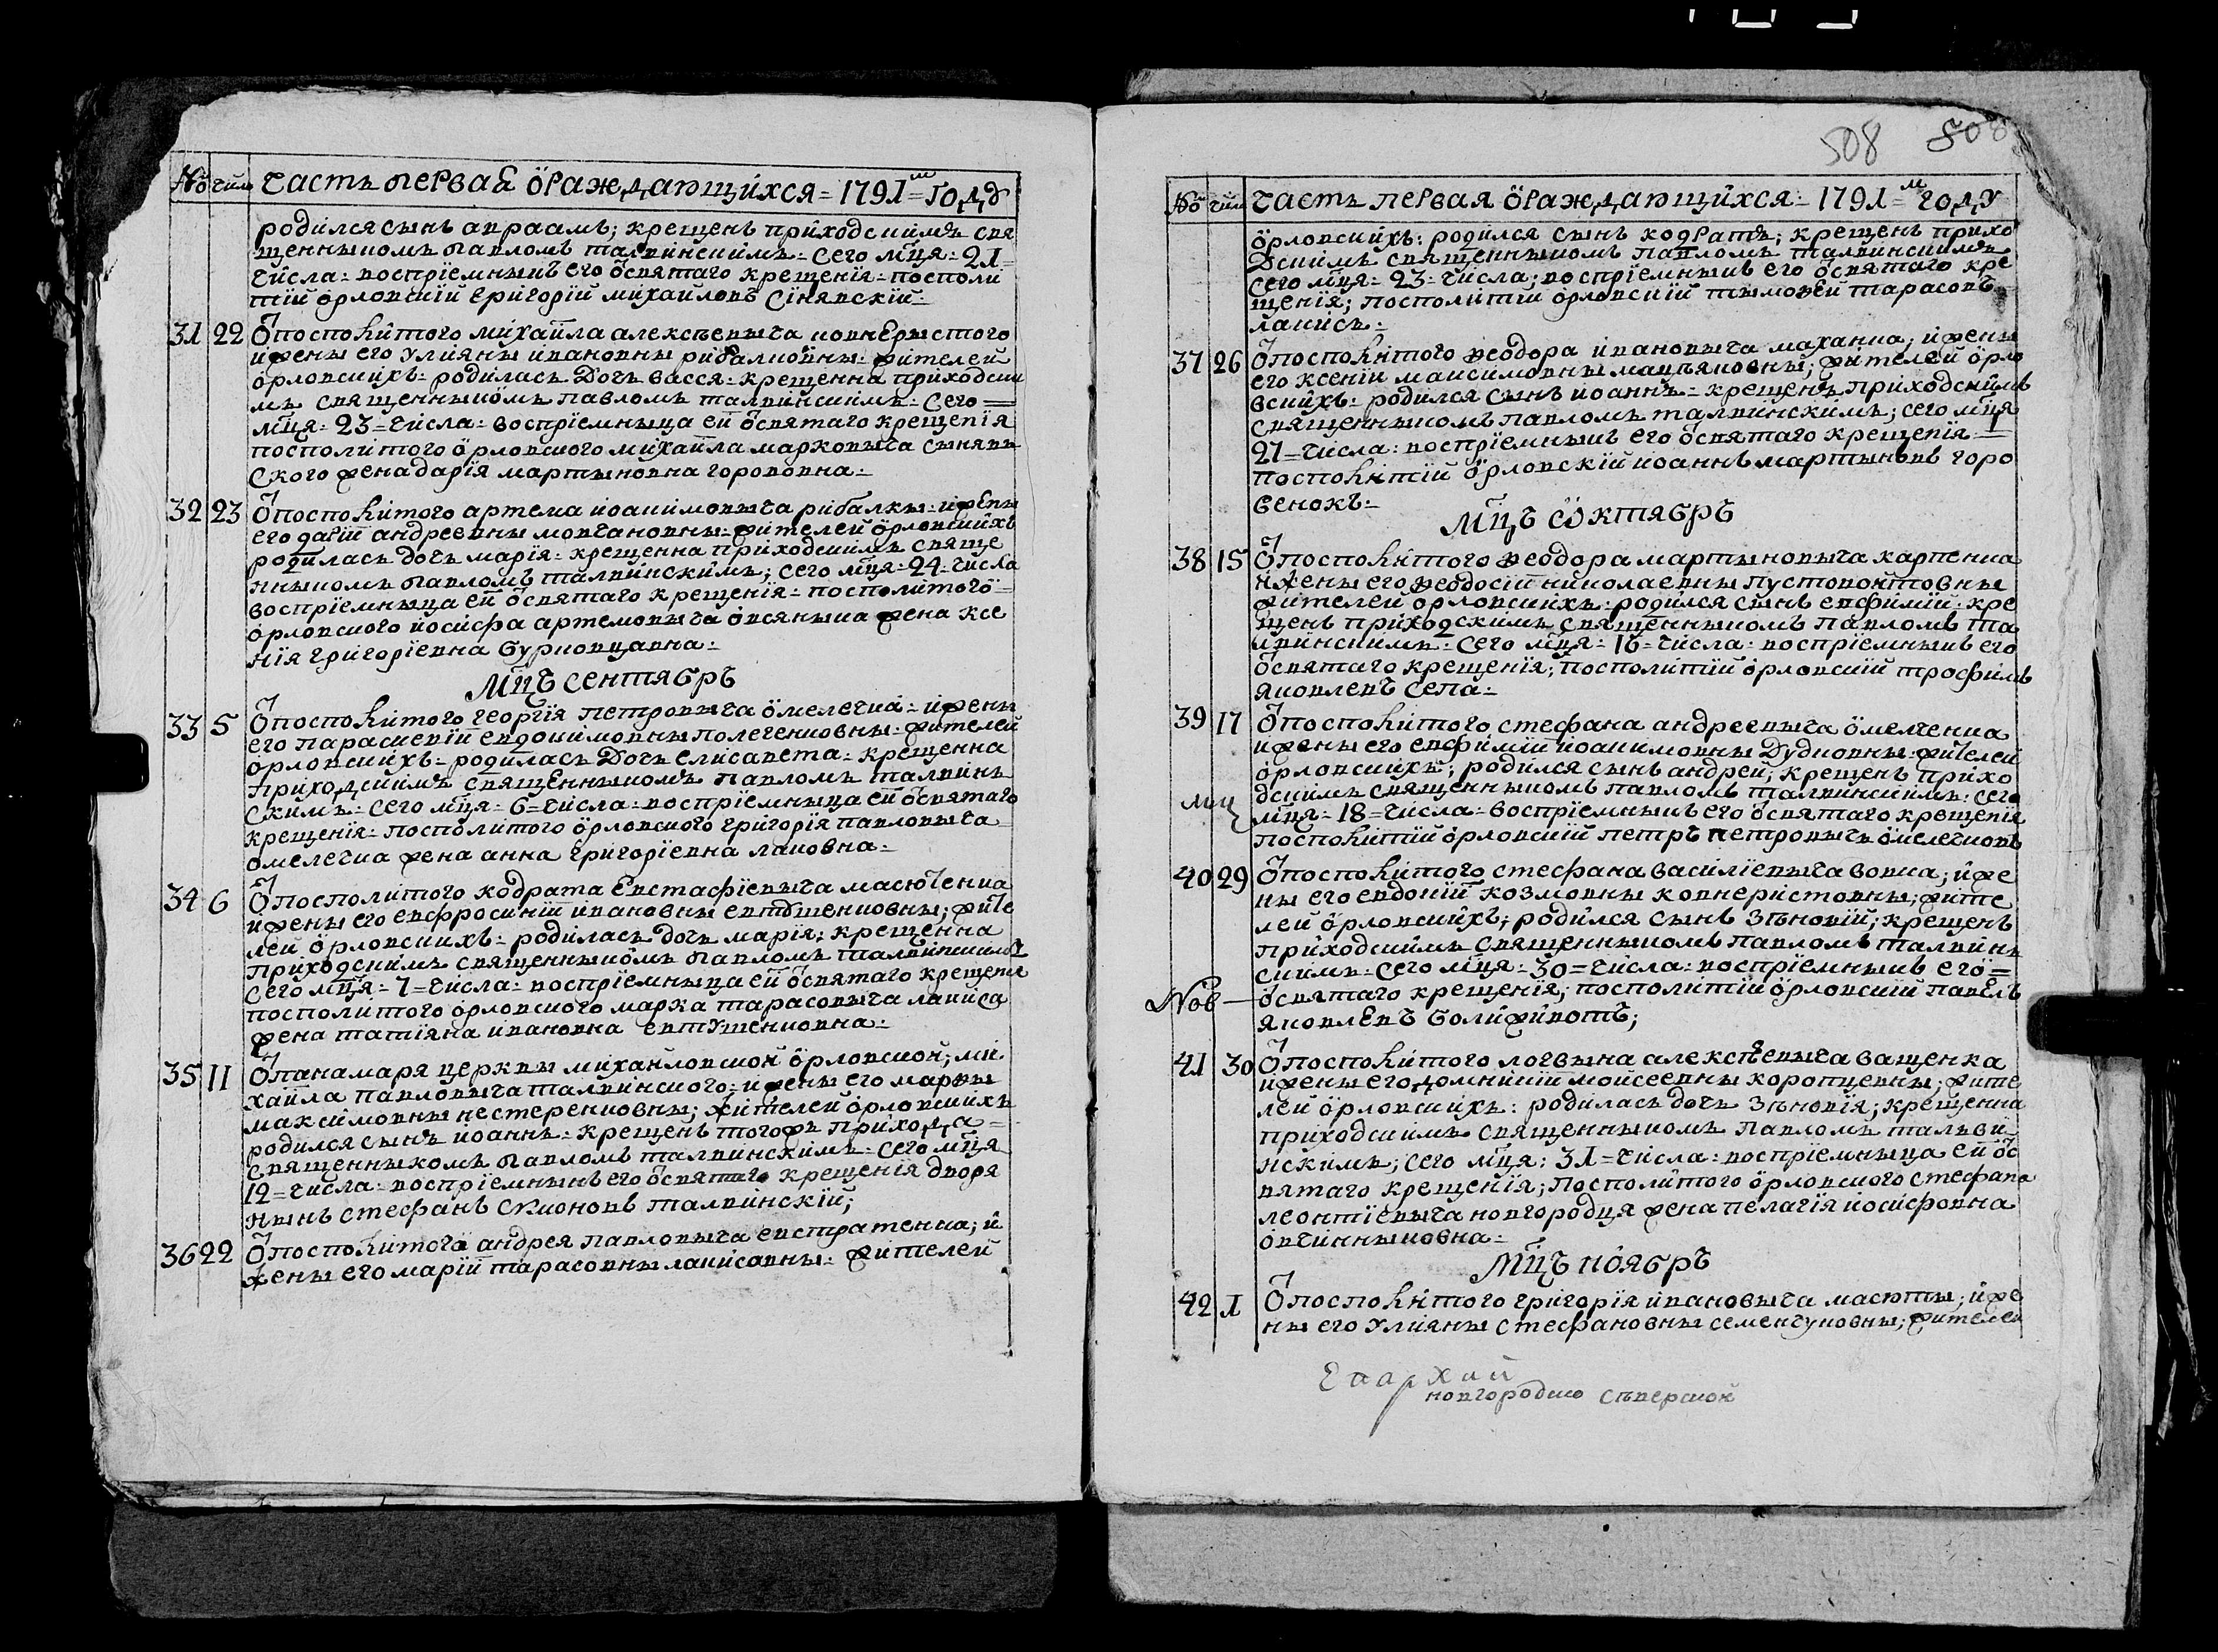 № числ Часть первая ораждающихся = 1791м = году
родился сынъ авраамъ; крещенъ приходскимъ свя
щенныкомъ павломъ талвинскимъ: сего мца: 21=
числа: воспріемныкъ его ѿ святаго крещенія: посполи
тій орловскій григорій михайловъ синявскій:
31 22 Ѿ посполитого михайла алексѣевыча ковнеристого
и жены его улияны ивановны рибалковны: жителей
орловскихъ: родилась дочь васся: крещенна приходски
мъ священныкомъ павломъ талвинскимъ: сего =
мца: 23= числа: воспріемныца ей ѿ святаго крещенія
посполитого орловского михайла марковыча сынявъ
ского жена дарія мартыновна горововна:
32 23 Ѿ посполитого артема иоакимовыча рибалки: и жены
его дарій андреевны мовчановны: жителей орловскихъ
родилась дочь марія: крещенна приходскимъ свяще
нныкомъ павломъ талвинскимъ; сего мца: 24: числа
воспріемныца ей ѿ святаго крещенія: посполитого
орловского йосифа артемовыча овсяныка жена ксе
нія григоріевна бурковцавна:
Мцъ сентябръ
33 5 Ѿ посполитого георгія петровыча омелечка: и жены
его параскевій евдокимовны полегенковны: жителей
орловскихъ: родилась дочь елисавета: крещенна
приходскимъ священныкомъ павломъ талвинъ
скимъ: сего мца: 6= числа: воспріемныца ей ѿ святаго
крещенія: посполитого орловского григорія павловыча
омелечка жена анна григоріевна лаковна:
34 6 Ѿ посполитого кодрата евстафіевыча масюченка
и жены его евфросиній ивановны евтушенковны; жите
лей орловскихъ: родилась дочь марія; крещенна
приходскимъ священныкомъ павломъ талвинскимъ
сего мца: 7= числа: воспріемныца ей ѿ святаго крещенія
посполитого орловского марка тарасовыча лакиса
жена татіяна ивановна евтушенковна:
35 11 Ѿ панамаря церкви михайловской орловской; ми
хайла павловыча талвинского: и жены его марѳы
максимовны нестеренковны; жителей орловскихъ
родился сынъ иоаннъ: крещенъ того жъ прихода =
священныкомъ павломъ талвинскимъ: сего мца
12= числа: воспріемныкъ его ѿ святаго крещенія дворя
нынъ стефанъ симоновъ талвинскій;
36 22 Ѿ посполитого андрея павловыча евстратенка; и
жены его марій тарасовны лакисовны: жителей
508 508
№ числ Часть первая ораждающихся: 1791м = году
орловскихъ: родился сынъ кодратъ; крещенъ прихо
дскимъ священныкомъ павломъ талвинскимъ
сего мца: 23: числа; воспріемныкъ его ѿ святаго кре
щенія; посполитій орловскій тымоѳей тарасовъ
лакисъ:
37 26 Ѿ посполитого ѳеодора ивановыча маханка; и жены
его ксеніи максимовны мацъяновны; жителей орло
вскихъ: родился сынъ иоаннъ: крещенъ приходскимъ
священныкомъ павломъ талвинскимъ; сего мца
27= числа: воспріемныкъ его ѿ святаго крещенія:
посполитій орловскій иоаннъ мартыновъ горо
венокъ:
Мцъ октябръ
38 15 Ѿ посполитого ѳеодора мартыновыча карпенка
и жены его ѳеодосій николаевны пустовойтовны
жителей орловскихъ: родился сынъ евфимій: кре
щенъ приходскимъ священныкомъ павломъ та
лвинскимъ: сего мца: 16= числа: воспріемныкъ его
ѿ святаго крещенія; посполитій орловскій трофимъ
яковлевъ сепа:
39 17 Ѿ посполитого стефана андреевыча омелченка
и жены его евфиміи иоакимовны дудковны: жителей
орловскихъ; родился сынъ андрей; крещенъ прихо
дскимъ священныкомъ павломъ талвинскимъ: сего
мца: 18= числа: воспріемныкъ его ѿ святаго крещенія
посполитій орловскій петръ петровычъ омелечковъ
40 29 Ѿ посполитого стефана василіевыча вовка; и же
ны его евдокій козмовны ковнеристовны; жите
лей орловскихъ; родился сынъ зѣновій; крещенъ
приходскимъ священныкомъ павломъ талвинъ
скимъ: сего мца: 30= числа: воспріемныкъ его =
ѿ святаго крещенія; посполитій орловскій павелъ
яковлевъ болиживотъ;
41 30 Ѿ посполитого логвына алексѣевыча ващенка
и жены его домникіи мойсеевны коропцевны; жите
лей орловскихъ: родилась дочь зѣновія; крещенна
приходскимъ священныкомъ павломъ талъви
нскимъ; сего мца: 31= числа: воспріемныца ей ѿ с
вятаго крещенія; посполитого орловского стефана
леонтіевыча новгородця жена пелагія йосифовна
овчинныковна:
Мцъ ноябръ
42 1 Ѿ посполитого григорія ивановыча масюты; и же
ны его улияны стефановны семенчуковны; жителей
Епархии
новгородско сѣверской